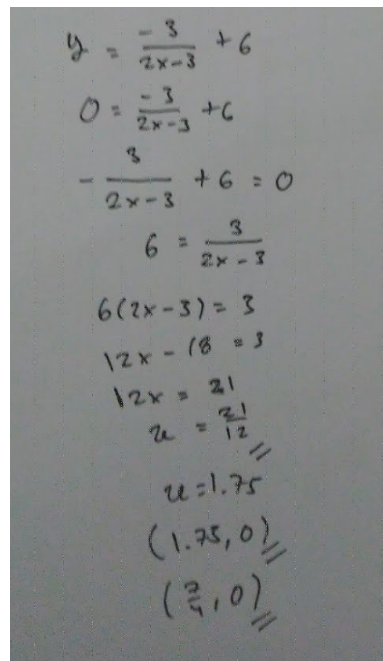 y = -3/(2x-3) + 6
0 = -3/(2x-3) + 6
- 3/(2x-3) + 6 = 0
6 = 3/(2x-3)
6(2x-3) = 3
12x - 18 = 3
12x = 21
x = 21/12
x = 1.75
(1.75, 0)
(7/4, 0)